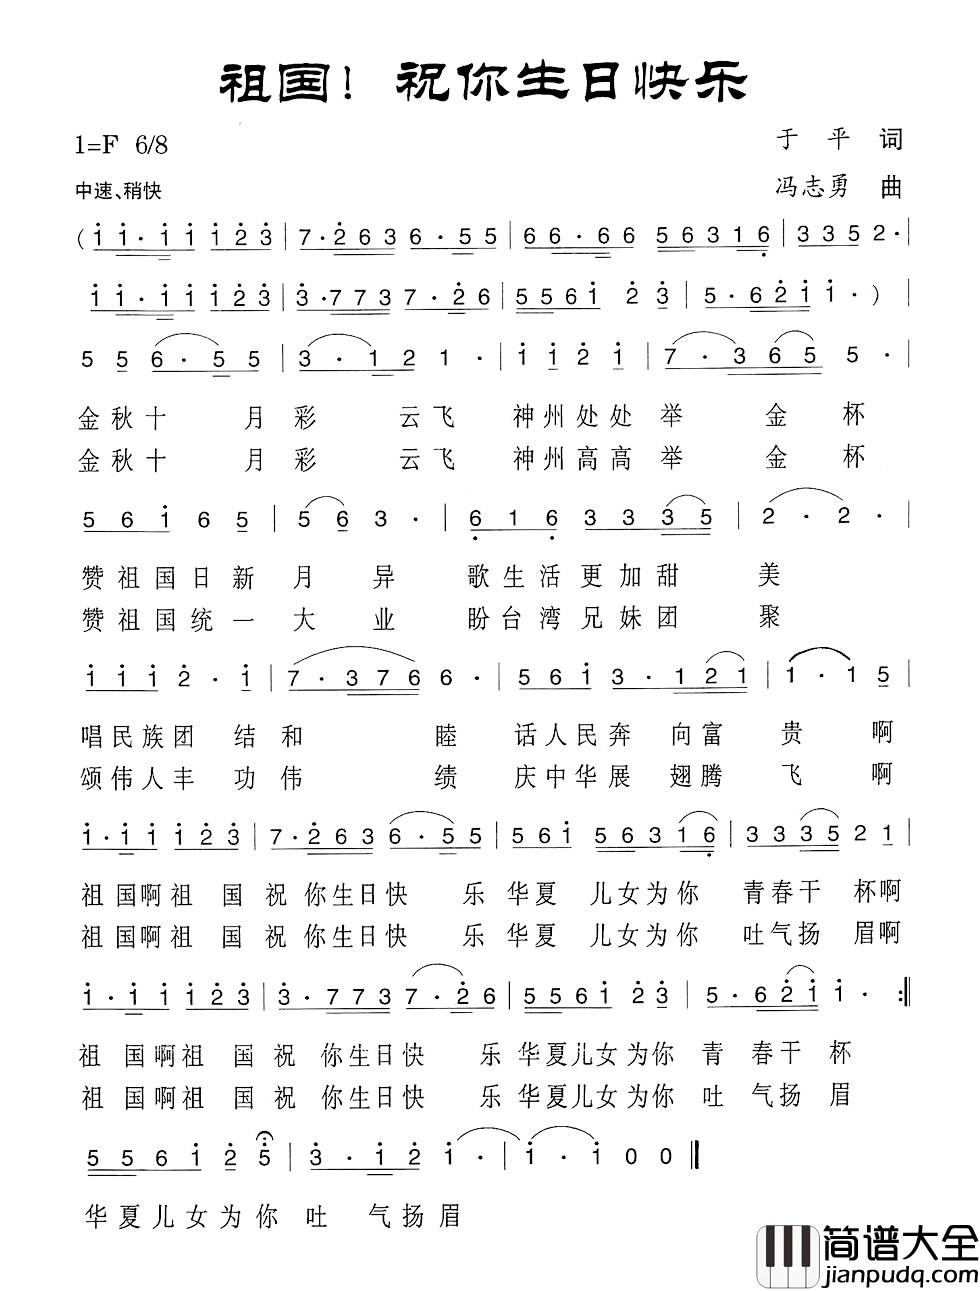 祖国！祝你生日快乐
1=F 6/8
于平 词
中速、稍快
冯志勇 曲
( i i · i i i 2 3 | 7 · 2 6 3 6 · 5 5 | 6 6 · 6 6 5 6 3 1 6 | 3 3 5 2 · |
i i · i i i 2 3 | 3 · 7 7 3 7 · 2 6 | 5 5 6 i 2 3 | 5 · 6 2 i i · ) |
5 5 6 · 5 5 | 3 · 1 2 1 · | i i 2 i | 7 · 3 6 5 5 · |
金秋十 月彩 云飞 神州处处举 金 杯
金秋十 月彩 云飞 神州高高举 金 杯
5 6 i 6 5 | 5 6 3 · | 6 1 6 3 3 3 5 | 2 · 2 · |
赞祖国日新 月 异 歌生活更加甜 美
赞祖国统一 大 业 盼台湾兄妹团 聚
i i i 2 · i | 7 · 3 7 6 6 · | 5 6 i 3 · 1 2 1 | i · i 5 |
唱民族团 结和 睦 话人民奔 向富 贵 啊
颂伟人丰 功伟 绩 庆中华展 翅腾 飞 啊
i · i i i 2 3 | 7 · 2 6 3 6 · 5 5 | 5 6 i 5 6 3 1 6 | 3 3 3 5 2 1 |
祖国啊祖 国 祝 你生日快 乐 华夏 儿女为你 青春干 杯啊
祖国啊祖 国 祝 你生日快 乐 华夏 儿女为你 吐气扬 眉啊
i · i i i 2 3 | 3 · 7 7 3 7 · 2 6 | 5 5 6 i 2 3 | 5 · 6 2 i i · :||
祖 国啊祖 国 祝 你生日快 乐 华夏儿女为你 青 春干 杯
祖 国啊祖 国 祝 你生日快 乐 华夏儿女为你 吐 气扬 眉
5 5 6 i 2 5 | 3 · i 2 i · | i · i 0 0 ||
华夏儿女为你 吐 气扬眉
简谱大全
jianpudq.com